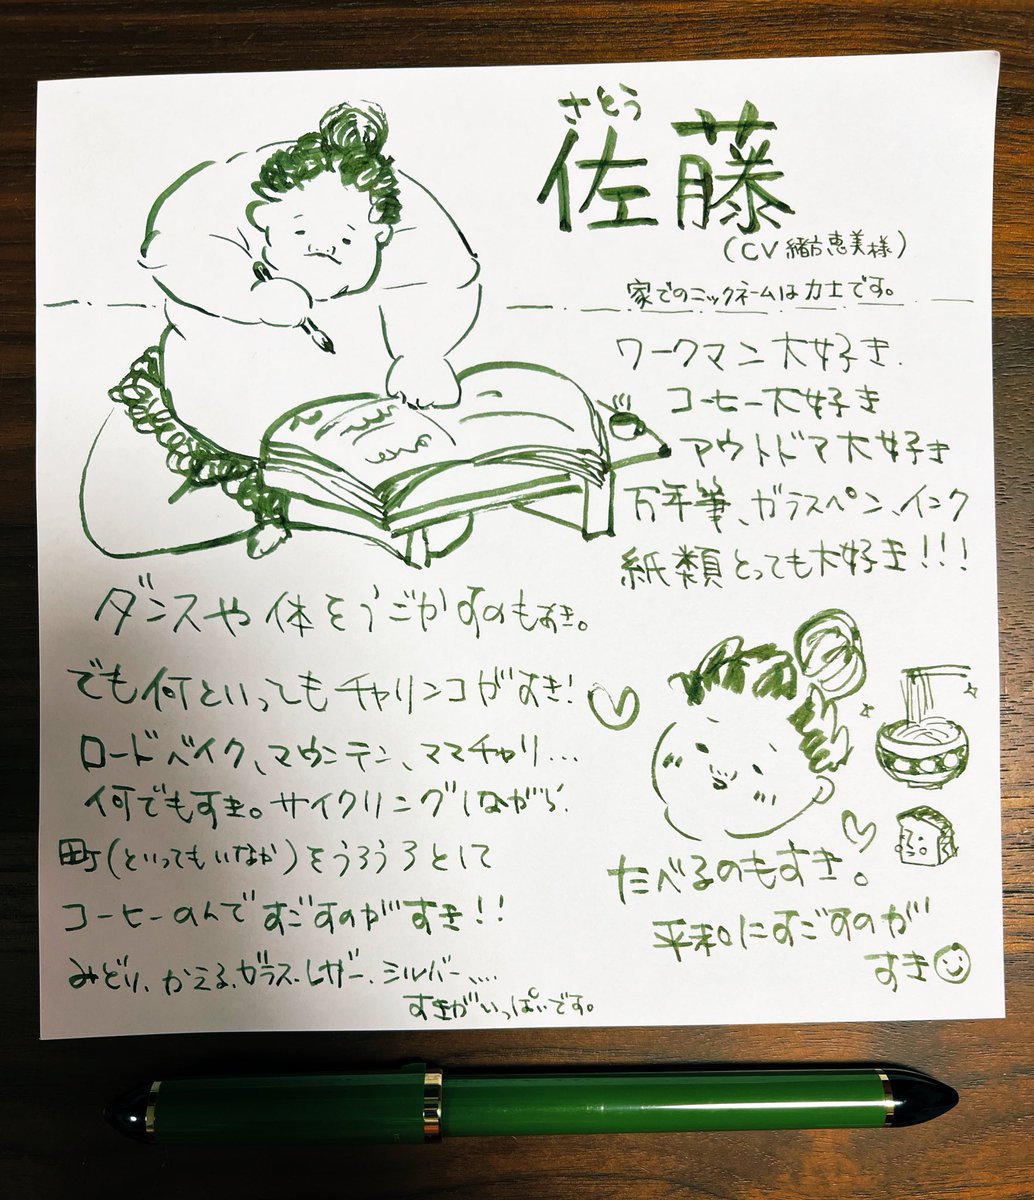 さとう
佐藤
(CV 緒方恵美様)
家でのニックネームは力士です。
ワークマン大好き.
コーヒー大好き
アウトドア大好き
万年筆、ガラスペン、インク
紙類とっても大好き!!!
ダンスや体をうごかすのもすき。
でも何といってもチャリンコがすき!
ロードバイク、マウンテン、ママチャリ…
何でもすき。サイクリングしながら、
町(といってもいなか)をうろうろとして
コーヒーのんですごすのがすき!!
みどり、かえる、ガラス、レザー、シルバー、…
すきがいっぱいです。
たべるのもすき。
平和にすごすのが
すき